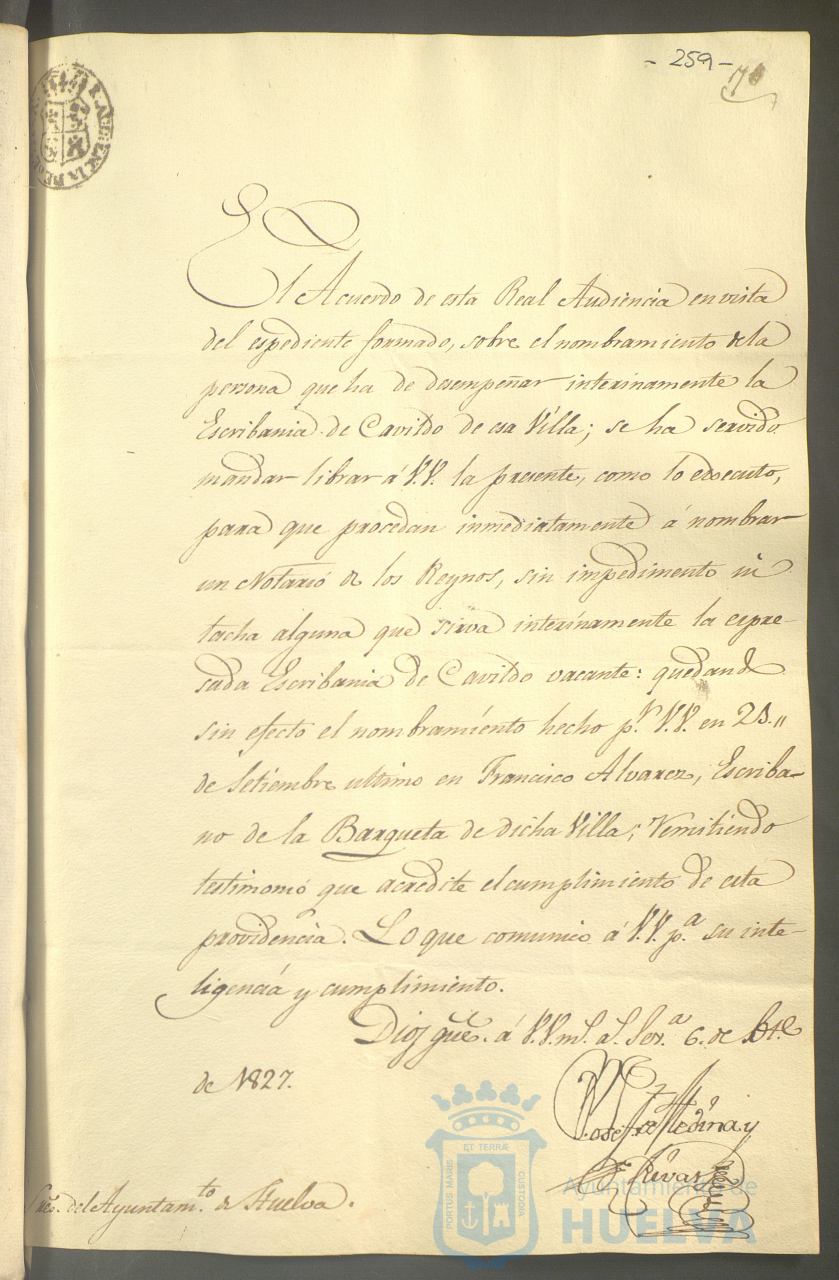 - 259 -
70
El Acuerdo de esta Real Audiencia en vista
del espediente formado, sobre el nombramiento de la
persona que ha de desempeñar interinamente la
Escribania de Cavildo de esa Villa; se ha servido
mandar librar á V.V. la presente, como lo executo,
para que procedan inmediatamente á nombrar
un Notario de los Reynos, sin impedimento ni
tacha alguna que sirva interinamente la espre-
sada Escribania de Cavildo vacante: quedand
sin efecto el nombramiento hecho pr. V.V. en 25.,,
de Setiembre ultimo en Francisco Alvarez, Escriba-
no de la Barqueta de dicha Villa; Remitiendo
testimonio que acredite el cumplimiento de esta
providencia. Lo que comunico á V.V. pa. su inte-
ligencia y cumplimiento.
Dios gue. á V.V. ms. as. Seva. 6. de
de 1827.
José de Medina y
Rivas
Sres. del Ayuntamto. de Huelva.
PORTUS MARIS ET TERRÆ CUSTODIA
Ayuntamiento de
HUELVA